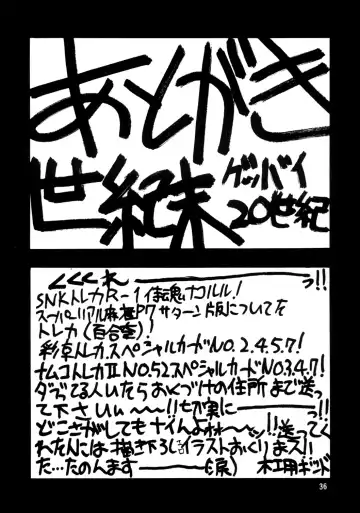 あとがき
世紀末
グッバイ
20世紀
くくくれ――――っ!!
SNKトレカR-1侍魂ナコルル!
スーパーリアル麻雀P7サターン版についてたを
トレカ(百合きッ)
彩京トレカスペシャルカードNO.2.4.5.7!
ナムコトレカⅡNO.52スペシャルカードNO.3.4.7!
ダブってる人いたらおくづけの住所まで送っ
て下さいぃ〜〜!!切実に――っ!!
どこさがしてもナイんよォ〜〜ッ!!送ってく
れた人には描き下ろしイラストおくりまス!!
た…たのんます――――(涙)
36